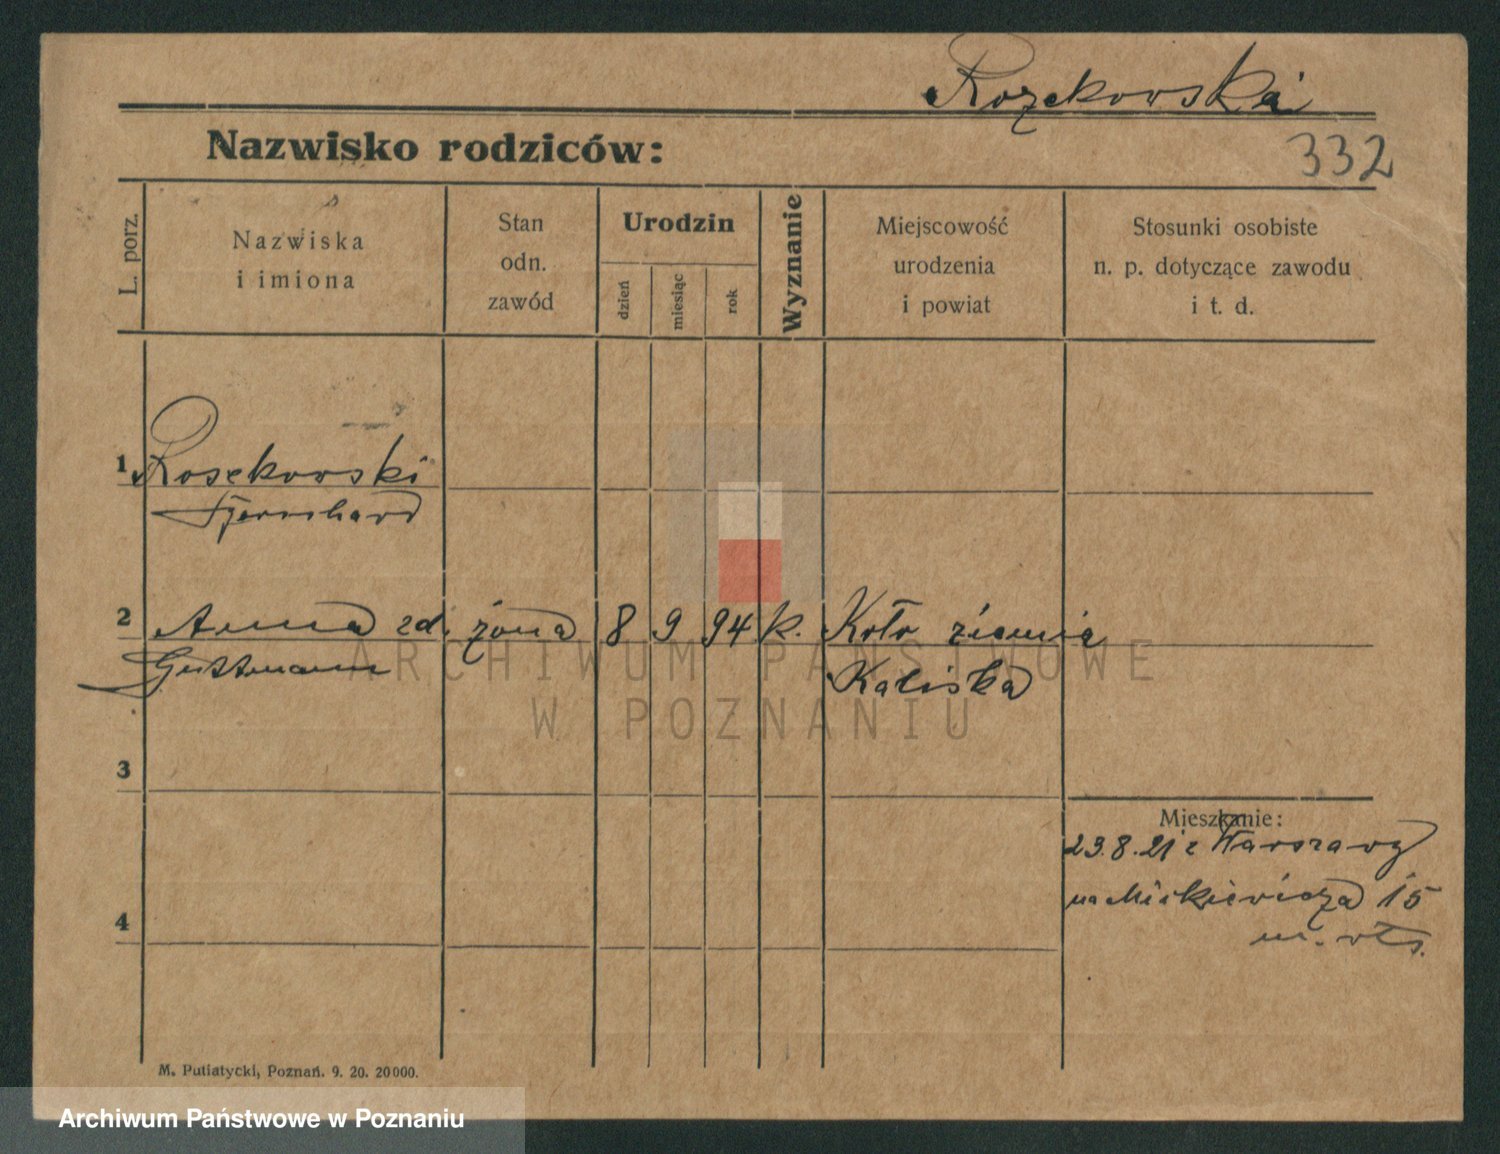 Rozekowska
332
Nazwisko rodziców:
L. porz.
Nazwiska
i imiona
Stan
odn.
zawód
Urodzin
dzień
miesiąc
rok
Wyznanie
Miejscowość
urodzenia
i powiat
Stosunki osobiste
n. p. dotyczące zawodu
i t. d.
1 Rosekowski
Bernhard
2 Anna zd. żona 8 9 94 k. Koło ziemia
Guttmann Kaliska
ARCHIWUM PAŃSTWOWE
W POZNANIU
3
Mieszkanie:
23.8.21 z Warszawy
na Mickiewicza 15
4
M. Putiatycki, Poznań. 9. 20. 20000.
Archiwum Państwowe w Poznaniu